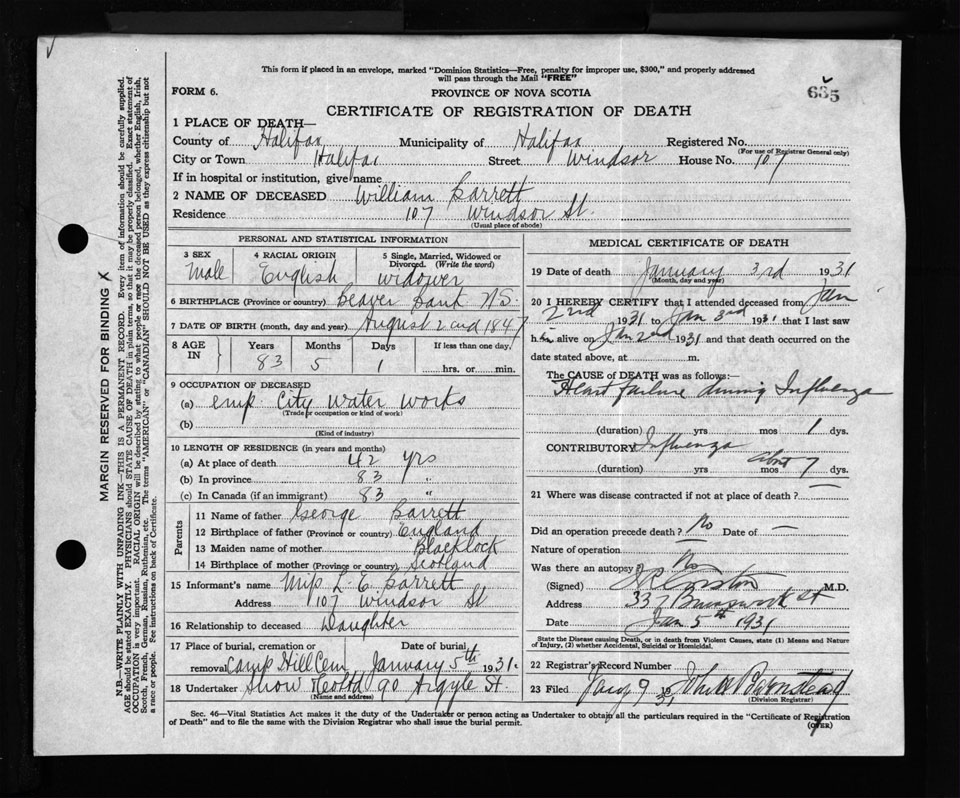 This form if placed in an envelope, marked "Dominion Statistics—Free, penalty for improper use, $300," and properly addressed
will pass through the Mail "FREE"
FORM 6.
PROVINCE OF NOVA SCOTIA
665
CERTIFICATE OF REGISTRATION OF DEATH
1 PLACE OF DEATH—
County of Halifax Municipality of Halifax Registered No.
(For use of Registrar General only)
City or Town Halifax Street Windsor House No. 107
If in hospital or institution, give name
2 NAME OF DECEASED William Barrett
Residence 107 Windsor St.
(Usual place of abode)
PERSONAL AND STATISTICAL INFORMATION
3 SEX 4 RACIAL ORIGIN 5 Single, Married, Widowed or
Divorced. (Write the word)
Male English widower
6 BIRTHPLACE (Province or country) Beaver Bank N.S.
7 DATE OF BIRTH (month, day and year) August 2nd 1847
8 AGE IN Years Months Days If less than one day,
83 5 1 hrs. or min.
9 OCCUPATION OF DECEASED
(a) emp. City water works
(Trade or occupation or kind of work)
(b)
(Kind of industry)
10 LENGTH OF RESIDENCE (in years and months)
(a) At place of death 42 yrs
(b) In province 83 "
(c) In Canada (if an immigrant) 83 "
Parents
11 Name of father George Barrett
12 Birthplace of father (Province or country) England
13 Maiden name of mother Blacklock
14 Birthplace of mother (Province or country) Scotland
15 Informant's name Miss L. E. Barrett
Address 107 Windsor St
16 Relationship to deceased Daughter
17 Place of burial, cremation or removal Date of burial
Camp Hill Cem January 5th 1931.
18 Undertaker Snow & Co Ltd 90 Argyle St.
(Name and address)
MEDICAL CERTIFICATE OF DEATH
19 Date of death January 3rd 1931
(Month, day and year)
20 I HEREBY CERTIFY that I attended deceased from Jan
2nd 1931 to Jan 3rd 1931 that I last saw
him alive on Jan 2nd 1931 and that death occurred on the
date stated above, at m.
The CAUSE of DEATH was as follows:—
Heart failure during Influenza
(duration) yrs mos 1 dys.
CONTRIBUTORY Influenza
(duration) yrs mos abt 7 dys.
21 Where was disease contracted if not at place of death? —
Did an operation precede death? No Date of —
Nature of operation —
Was there an autopsy No
(Signed) M.D.
Address 337 Brunswick St
Date Jan 5th 1931
State the Disease causing Death, or in death from Violent Causes, state (1) Means and Nature
of Injury, (2) whether Accidental, Suicidal or Homicidal.
22 Registrar's Record Number
23 Filed Jany 9 31
(Division Registrar)
Sec. 46—Vital Statistics Act makes it the duty of the Undertaker or person acting as Undertaker to obtain all the particulars required in the "Certificate of Registration
of Death" and to file the same with the Division Registrar who shall issue the burial permit.
(OVER)
MARGIN RESERVED FOR BINDING X
N.B.—WRITE PLAINLY WITH UNFADING INK—THIS IS A PERMANENT RECORD. Every item of information should be carefully supplied.
AGE should be stated EXACTLY. PHYSICIANS should STATE CAUSE OF DEATH in plain terms, so that it may be properly classified. Exact statement of
OCCUPATION is very important. RACIAL ORIGIN will be described by stating to what people or race the deceased person belonged, whether English, Irish,
Scotch, French, German, Russian, Ruthenian, etc. The terms "AMERICAN" or "CANADIAN" SHOULD NOT BE USED as they express citizenship but not
a race or people. See instructions on back of Certificate.